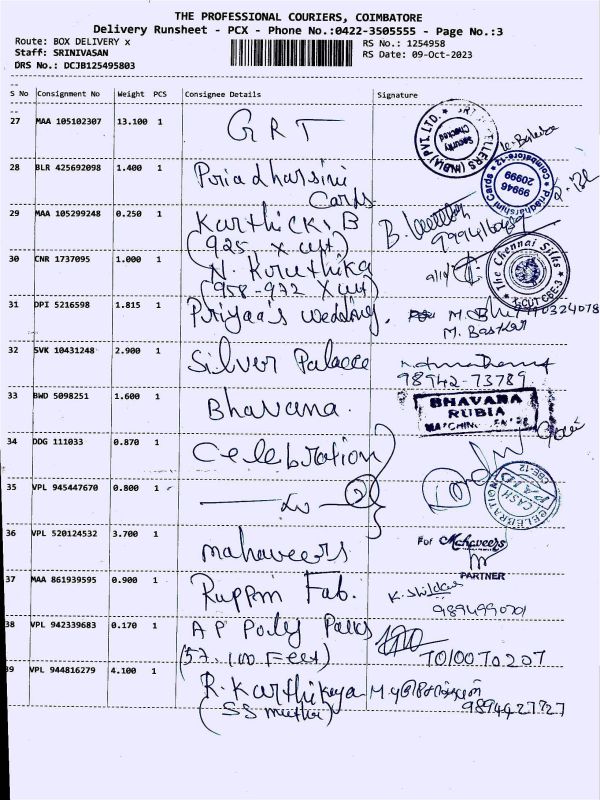 THE PROFESSIONAL COURIERS, COIMBATORE
Delivery Runsheet - PCX - Phone No.:0422-3505555 - Page No.:3
Route: BOX DELIVERY x
RS No.: 1254958
Staff: SRINIVASAN
RS Date: 09-Oct-2023
DRS No.: DCJB125495803
S No Consignment No Weight PCS Consignee Details Signature
27 MAA 105102307 13.100 1 GRT
Security Checked
28 BLR 425692098 1.400 1 Priadharsini
Cards
Priadharshini Cards Coimbatore-12
99946
20999
29 MAA 105299248 0.250 1 Karthick. B
(925, X cut)
30 CNR 1737095 1.000 1 N. Kruthika
(958-972 X cut)
The Chennai Silks
X-CUT CBE-3
31 DPI 5216598 1.815 1 Priyaa's wedding.
M. Baskar
32 SVK 10431248 2.900 1 Silver Palace
98942-73789
33 BWD 5098251 1.600 1 Bhavana.
BHAVANA
RUBIA
34 DDG 111033 0.870 1 Celebration
CELEBRATION CBE-12
CASH
PAID
35 VPL 945447670 0.800 1 Do 2
36 VPL 520124532 3.700 1 mahaveers
For Mahaveers
PARTNER
37 MAA 861939595 0.900 1 Ruppm Fab.
38 VPL 942339683 0.170 1 A P Poly Packs
(57, 100 Feet)
39 VPL 944816279 4.100 1 R. Karthikeya
(SS muthu)
9894427727